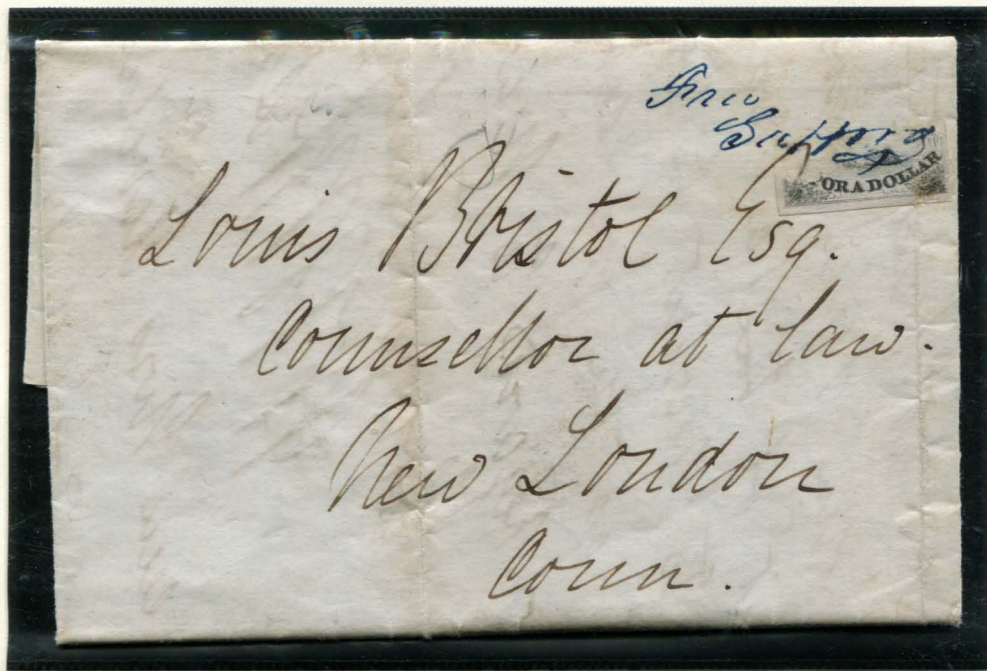 Free
ORADOLLAR
Louis Bristol Esq.
Counsellor at law.
New London
Conn.